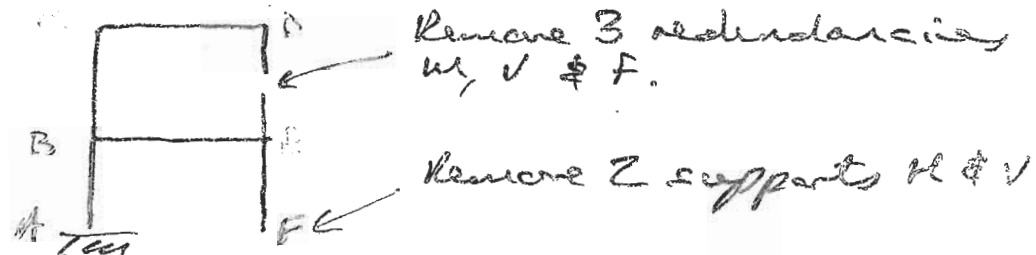 D
Remove 3 redundancies
M, V & F.
B
E
Remove 2 supports H & V
A
F